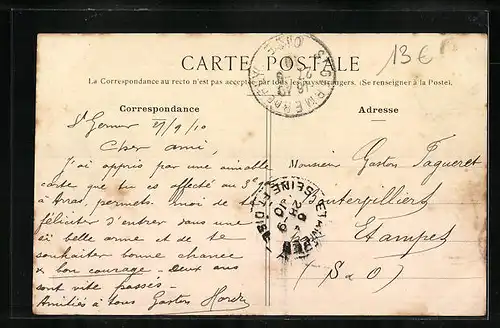 13€
CARTE POSTALE
La Correspondance au recto n'est pas acceptée par tous les pays étrangers. (Se renseigner à la Poste).
Correspondance
Adresse
St Germer 27/9/10
Cher ami,
J'ai appris par une aimable
carte que tu es affecté au 3e
à Arras, permets moi de te
féliciter d'entrer dans une
si belle arme et de te
souhaiter bonne chance
& bon courage. Deux ans
sont vite passés.
Amitiés à tous Gaston
Monsieur Gaston Paqueret
Etampes
(S & O)
SEINE ET OISE